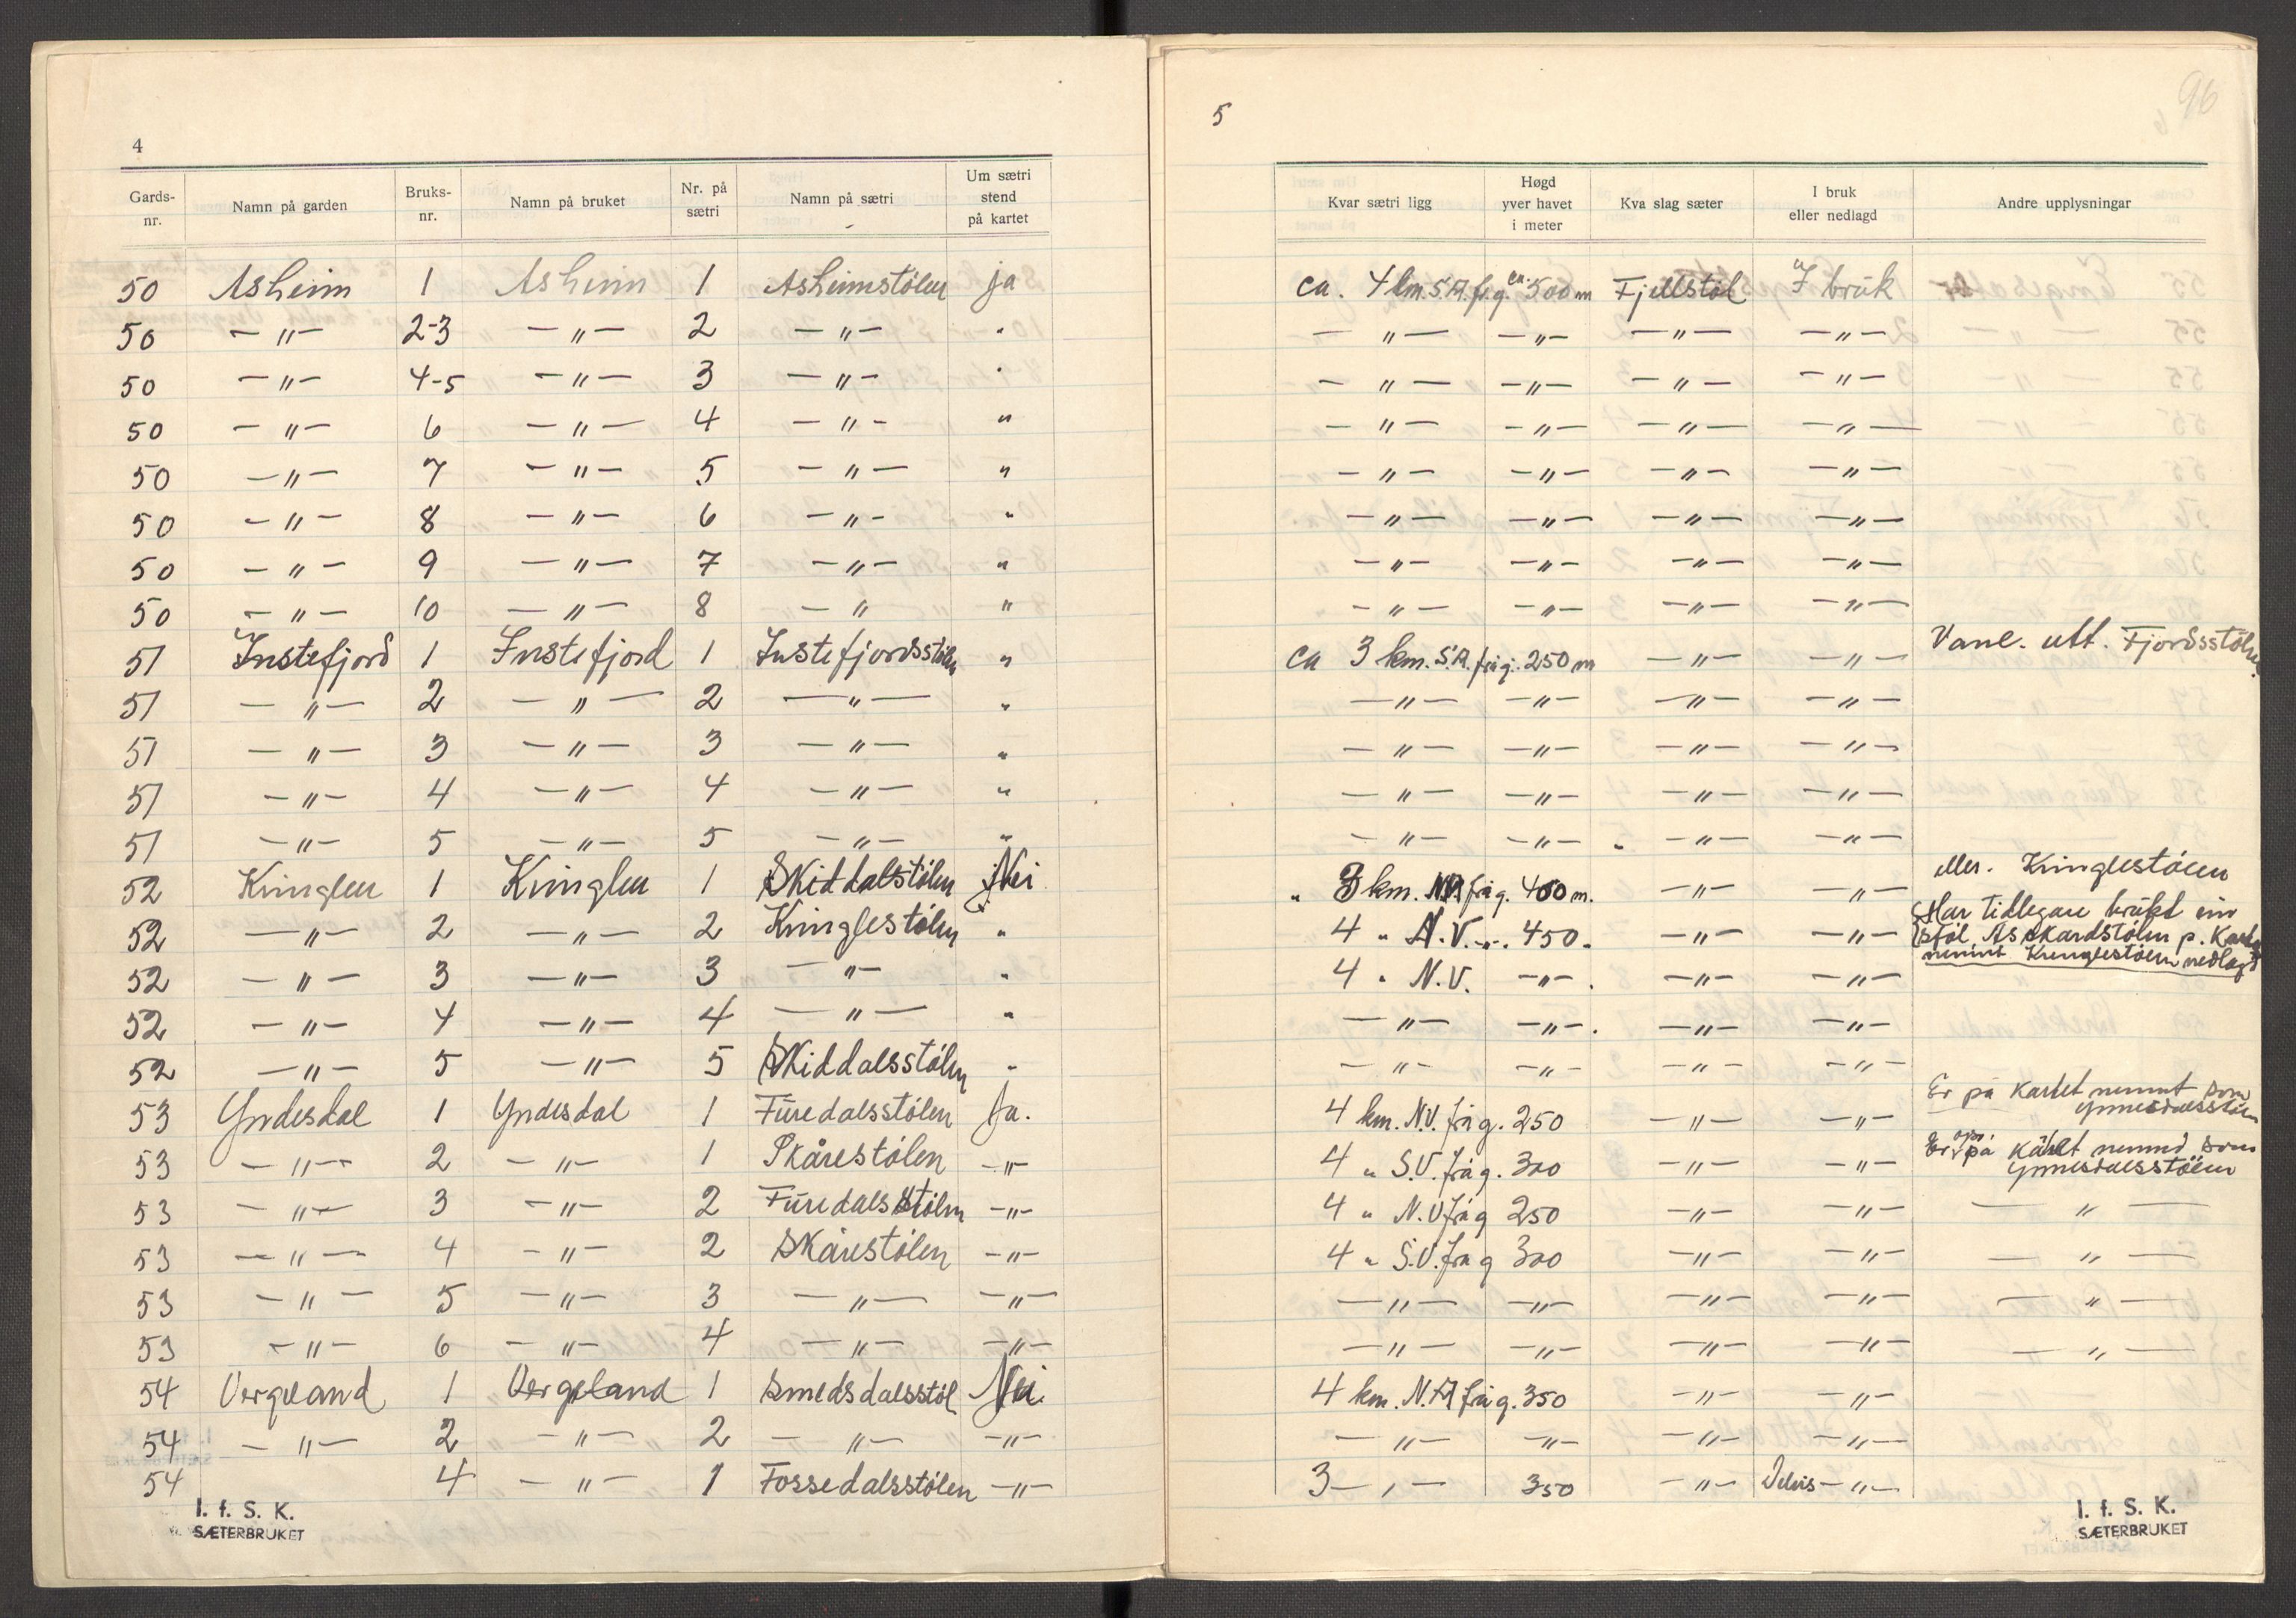 4
Gards-nr. Namn på garden Bruks-nr. Namn på bruket Nr. på sætri Namn på sætri Um sætri stend på kartet
50 Asheim 1 Asheim 1 Asheimstölen ja
50 —"— 2-3 —"— 2 —"— "
50 —"— 4-5 —"— 3 —"— "
50 —"— 6 —"— 4 —"— "
50 —"— 7 —"— 5 —"— "
50 —"— 8 —"— 6 —"— "
50 —"— 9 —"— 7 —"— "
50 —"— 10 —"— 8 —" "
51 Instefjord 1 Instefjord 1 Instefjordsstölen "
51 —"— 2 —"— 2 —"— "
51 —"— 3 —"— 3 —"— "
51 —"— 4 —"— 4 —"— "
51 —"— 5 —"— 5 —"— "
52 Kringlen 1 Kringlen 1 Skiddalstölen Nei
52 —"— 2 —"— 2 Kringlestölen "
52 —"— 3 —"— 3 —"— "
52 —"— 4 —"— 4 —"— "
52 —"— 5 —"— 5 Skiddalsstölen "
53 Yndesdal 1 Yndesdal 1 Furedalsstölen Ja.
53 —"— 2 —"— 1 Skårestölen —"—
53 —"— 3 —"— 2 Furedalsstölen —"—
53 —"— 4 —"— 2 Skårestölen —"—
53 —"— 5 —"— 3 —"— —"—
53 —"— 6 —"— 4 —"— —"—
54 Vergeland 1 Vergeland 1 Smedsdalsstöl Nei
54 —"— 2 —"— 2 —"— —"—
54 4 —"— 1 Fossedalsstölen —"—
I. f. S. K.
SÆTERBRUKET
96
5
Kvar sætri ligg Høgd yver havet i meter Kva slag sæter I bruk eller nedlagd Andre upplysningar
ca. 4 km. S.A. fr. g. ca. 500 m Fjellstöl I bruk
—"— —"— —"— —"—
—"— —"— —"— —"—
—"— —"— —"— —"—
—"— —"— —"— —"—
—"— —"— —"— —"—
—"— —"— —"— —"—
—"— —"— —"— —"—
ca 3 km. S.A. frå g. 250 m —"— —"— Vanl. utt. Fjordsstölen
—"— —"— —"— —"—
—"— —"— —"— —"—
—"— —"— —"— —"—
—"— —"— —"— —"—
" 3 km. N.A frå g. 400 m. —"— —"— eller. Kringlestölen
4 " N.V. —"— 450 " —"— —"— Har tidlegare brukt ein stöl, Asskardstölen p. Kartet nemnt Kringlestölen nedlagd
4 " N.V. —"— —"— —"—
—"— —"— —"— —"—
—"— —"— —"— —"—
4 km. N.V. frå g. 250 —"— —"— Er på Kartet nemnt som Ynnesdalsstölen
4 " S.V. frå g. 300 —"— —"— Er og på Kartet nemnd som Ynnesdalsstölen
4 " N.V frå g 250 —"— —"— —"—
4 " S.V. frå g 300 —"— —"— —"—
—"— —"— —"— —"— —"—
—"— —"— —"— —"— —"—
4 km. N.A frå g. 350 —"— —"—
—"— —"— —"— —"—
3 —"— 350 —"— Delvis —"—
I. f. S. K.
SÆTERBRUKET